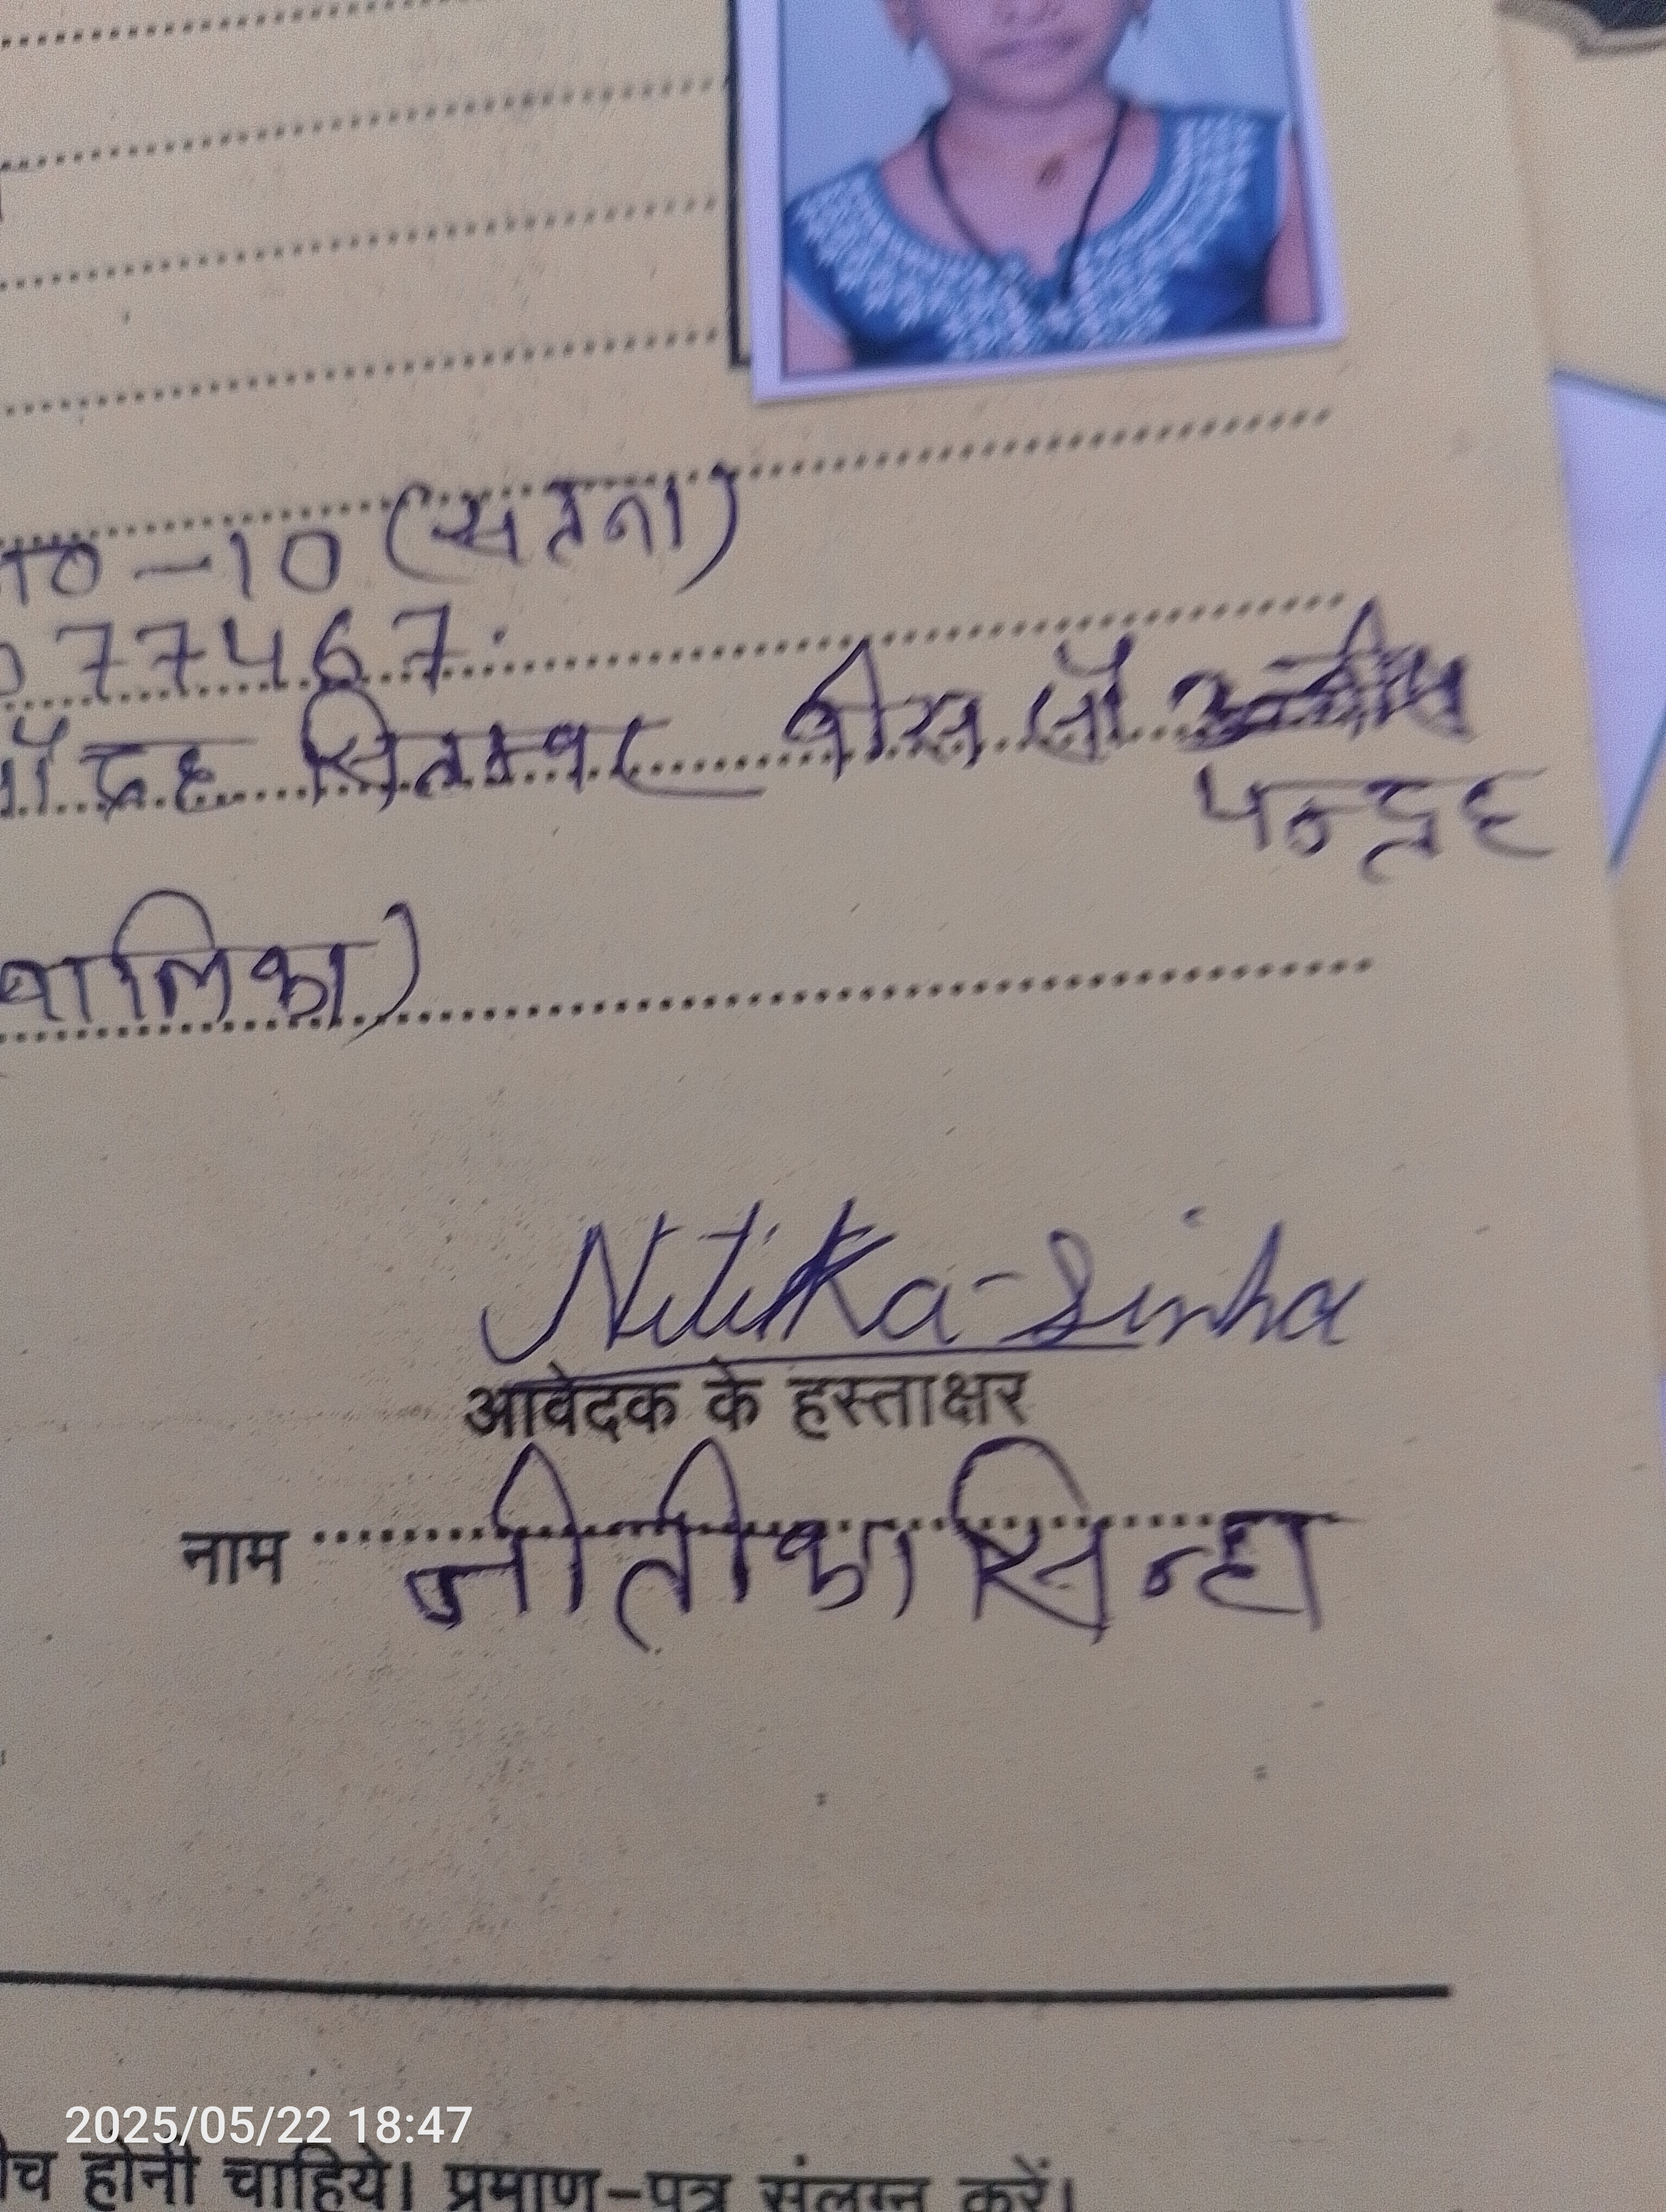 न0 -10 (सतना)
77467.
चौदह सितम्बर बीस सौ
पन्द्रह
बालिका)
Nitika-Sinha
आवेदक के हस्ताक्षर
नाम
नीतीका सिन्हा
2025/05/22 18:47
होनी चाहिये। प्रमाण-पत्र संलग्न करें।